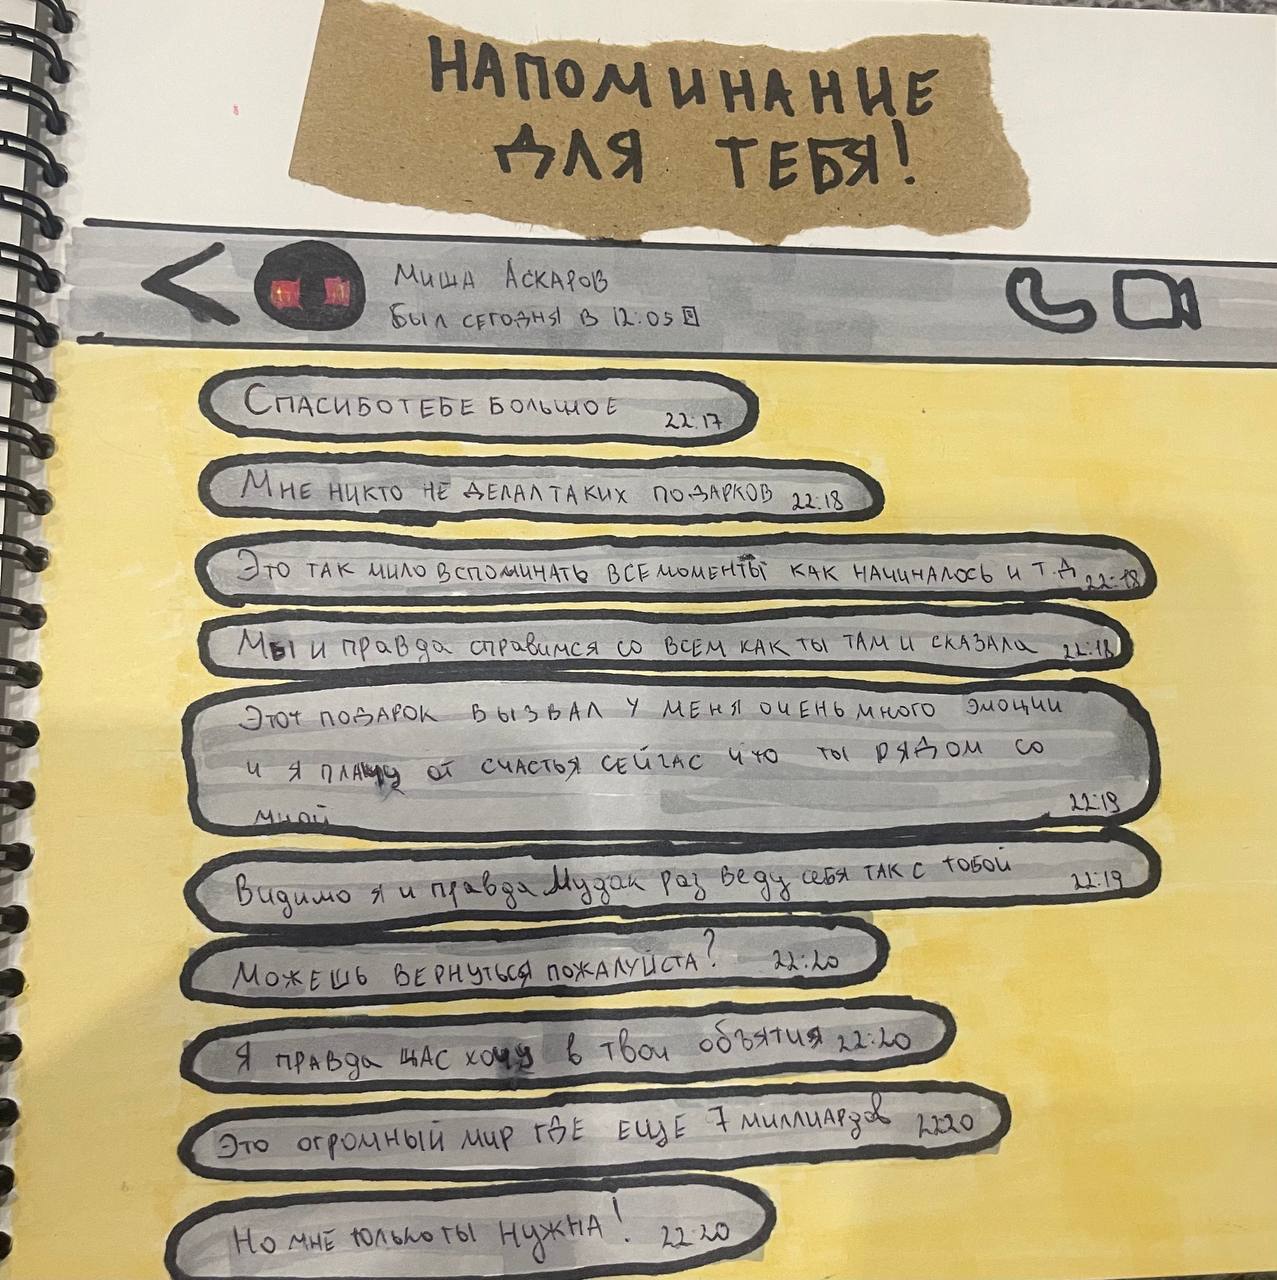 НАПОМИНАНИЕ
ДЛЯ ТЕБЯ!
Миша Аскаров
Был сегодня в 12:05
Спасибо тебе большое 22:17
Мне никто не делал таких подарков 22:18
Это так мило вспоминать все моменты как начиналось и т.д 22:18
Мы и правда справимся со всем как ты там и сказала 22:18
Этот подарок вызвал у меня очень много эмоции
и я плачу от счастья сейчас что ты рядом со
мной 22:19
Видимо я и правда Мудак раз веду себя так с тобой 22:19
Можешь вернуться пожалуйста? 22:20
Я правда щас хочу в твои объятия 22:20
Это огромный мир где еще 7 миллиардов 22:20
Но мне только ты нужна! 22:20